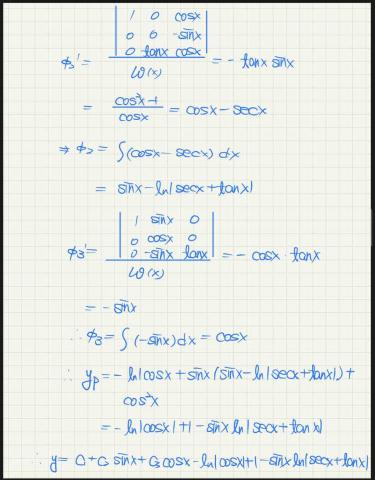 | 1 0 cosx |
| 0 0 -sinx |
| 0 tanx cosx |
ϕ₃' = ―――― = - tanx sinx
W(x)
= (cos²x-1)/cosx = cosx - secx
⇒ ϕ₂ = ∫(cosx - secx) dx
= sinx - ln|secx+tanx|
| 1 sinx 0 |
| 0 cosx 0 |
| 0 -sinx tanx |
ϕ₃' = ―――― = - cosx · tanx
W(x)
= - sinx
∴ ϕ₃ = ∫(-sinx)dx = cosx
∴ yp = - ln|cosx + sinx(sinx - ln|secx+tanx|) +
cos²x
= - ln|cosx|+1 - sinx ln|secx+tanx|
∴ y = C₁+C₂ sinx + C₃ cosx - ln|cosx|+1 - sinx ln|secx+tanx|